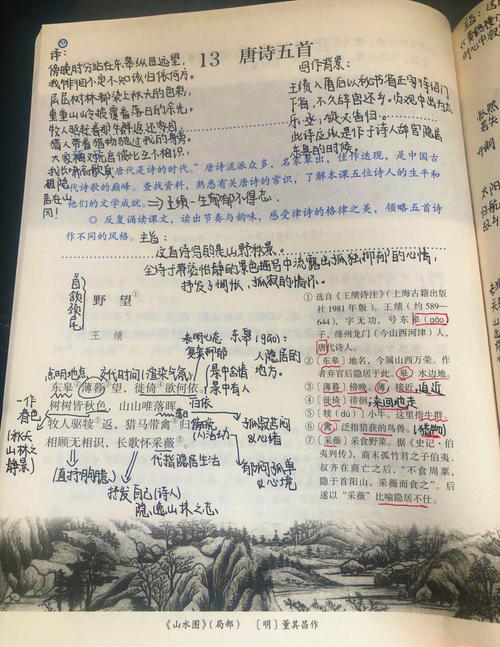 译:
傍晚时分站在东皋纵目远望,
我徘徊不定不知该归依何方。
层层树林都染上秋天的色彩,
重重山岭披覆着落日的余光。
牧人驱赶着那牛群返还家园,
猎人带着猎物驰过我的身旁。
大家相对无言彼此互不相识,
我长啸高歌真想隐
居在山
冈!
13 唐诗五首
写作背景:
王绩入唐后以秘书省正字待诏门
下省,不久辞官还乡。贞观中出为太
乐丞,后又告归。
此诗应该是作于诗人辞官隐居
东皋的时候。
唐代是诗的时代”。唐诗流派众多,名家辈出,佳作迭现,是中国古
代诗歌的巅峰。查找资料,熟悉有关唐诗的常识,了解本课五位诗人的生平和
他们的文学成就。
王绩一生郁郁不得志。
◎ 反复诵读课文,读出节奏与韵味,感受律诗的格律之美,领略五首诗
作不同的风格。
主旨:
这首诗写的是山野秋景。
全诗于萧瑟怡静的景色描写中流露出孤独抑郁的心情,
抒发了惆怅、孤寂的情怀。
首
颔
颈
尾
野 望①
王 绩
表明心态
东皋(gāo):
人隐居的
地方。
点明地点
交代时间(渲染气氛)
景中含情
景中有人
东皋②薄暮③望,徙倚④欲何依。
归依
树树皆秋色,山山唯落晖。
牧人驱犊⑤返,猎马带禽⑥归。
相顾无相识,长歌怀采薇⑦。
春色
(秋天
山林之
静景)
代指隐居生活
(直抒胸臆)
抒发自己(诗人)
隐逸山林之志
孤寂苦闷
的心绪
郁闷孤单
的心境
① 选自《王绩诗注》(上海古籍出版
社1981年版)。王绩(约589—
644),字无功,号东皋(gāo)
子,绛州龙门(今山西河津)人,
唐代诗人。
② 〔东皋〕地名,今属山西万荣。作
者弃官后隐居于此。皋,水边地。
③ 〔薄暮〕傍晚。薄,接近。
迫近
④ 〔徙倚〕徘徊。
来回地走
⑤ 〔犊(dú)〕小牛。这里指牛群。
⑥ 〔禽〕泛指猎获的鸟兽。
(猎物)
⑦ 〔采薇〕采食野菜。据《史记·伯
夷列传》,商末孤竹君之子伯夷、
叔齐在商亡之后,“不食周粟,
隐于首阳山,采薇而食之”。后
遂以“采薇”比喻隐居不仕。
《山水图》(局部) 〔明〕董其昌作